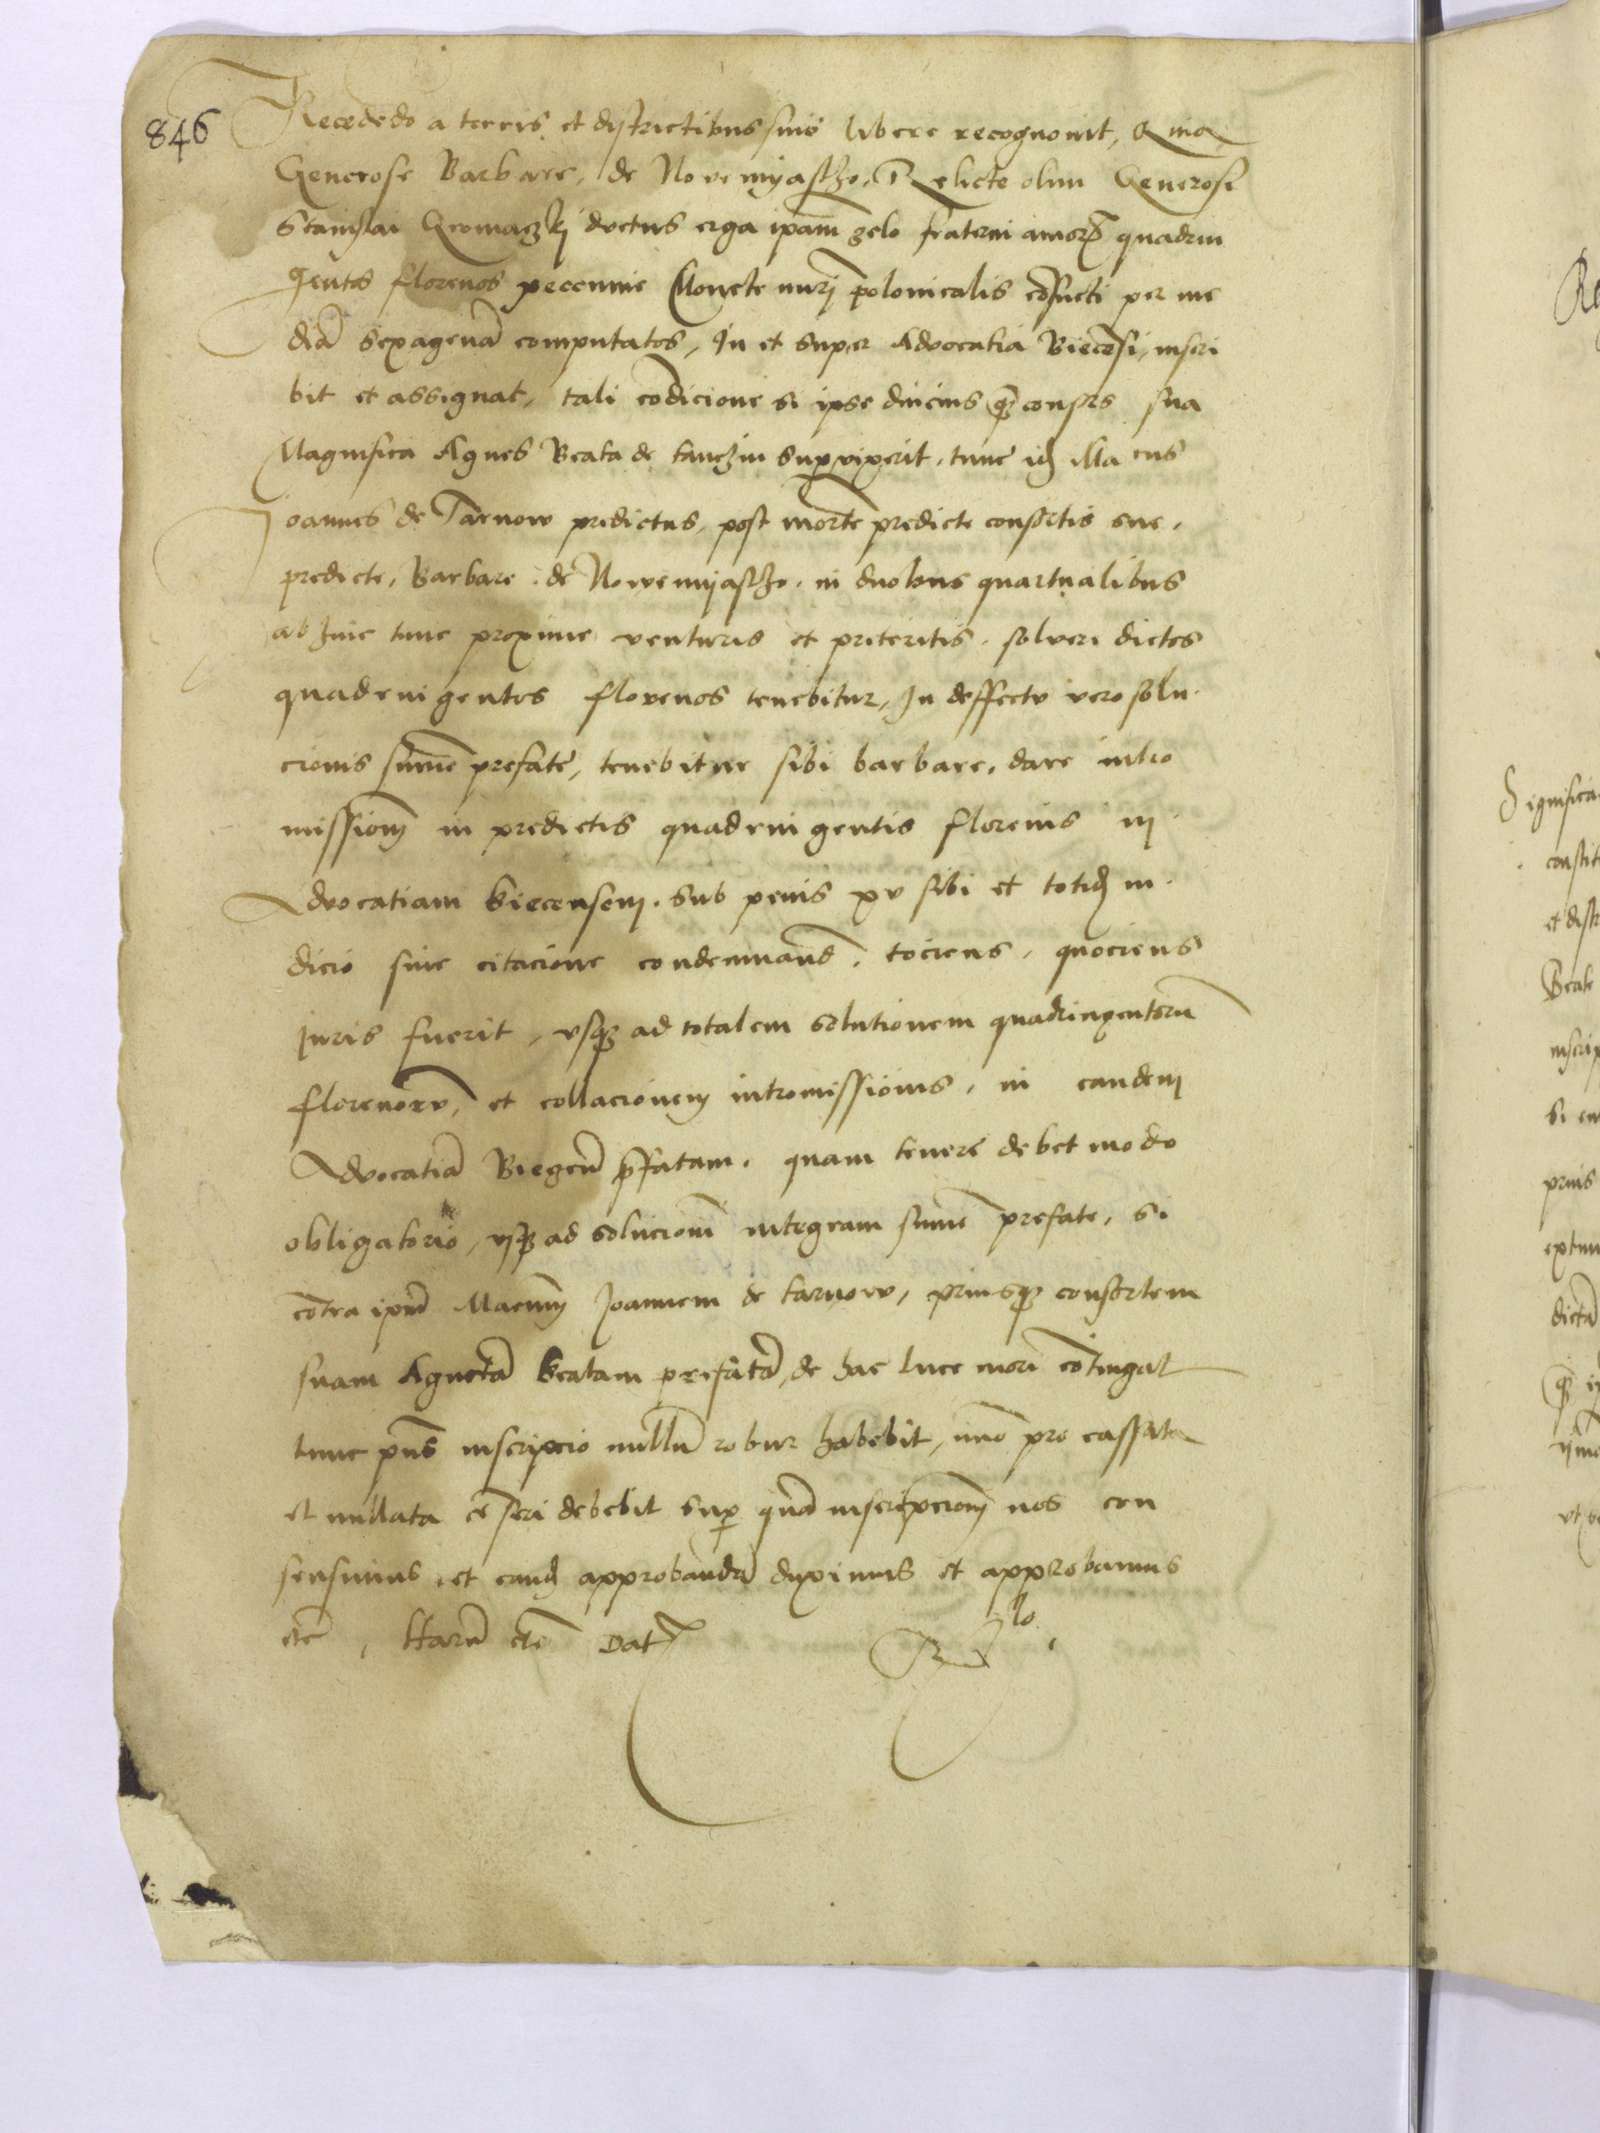 846
Recedēdo a terris et districtibus suis libere recognovit, Quia
Generose Barbare, de Novemyastho, Relicte olim Generosi
Stanislai Cromaczkÿ doctus erga ipam zelo fraterni amorꝭ quadrin
gentos florenos peccunie Monete nūri polonicalis cōsueti per me
diā sexagenā computatos, In et super Advocatia Biecēsi, inscri
bit et assignat, tali cōdicione si ipse diucius qȝ consors sua
Magnifica Agnes Beata de tanczin supervixerit, tunc idȝ
Joannes de Tarnow predictus, post mortē predicte consortis sue,
predicte, Barbare de Nowemyastho, in duobus quartualibus
ab hinc tunc proxime venturis et preteritis solvere dictos
quadringentos florenos tenebitur, In deffectu vero solu
cionis sūme prefate, tenebitur sibi barbare, dare intro
missionē in predictis quadringentis florenis in
Advocatiam biecensem, sub penis xv sibi et totidȝ iu
dicio sine citacione condemnand, tociens, quociens
juris fuerit, usqȝ ad totalem solutionem quadringentorū
florenorū, et collacionem intromissionis, in eandem
Advocatiā Biegen̄ p̄fatam, quam tenere debet modo
obligatorio, usqȝ ad solucionē integram sūme prefate, si
cōtra ipm̄ Magcum Joannem de tarnow, priusqȝ consortem
suam Agnetā beatam prefatā, de hac luce mori cōtingat
tunc p̄ns inscripcio nullū robur habebit, imo pro cassata
et nullata cēseri debebit sup̱ quā inscripcionē nos con
sensimus, et eandȝ approbandā duximus et approbamus
etc̄, Harū etc̄ Dat